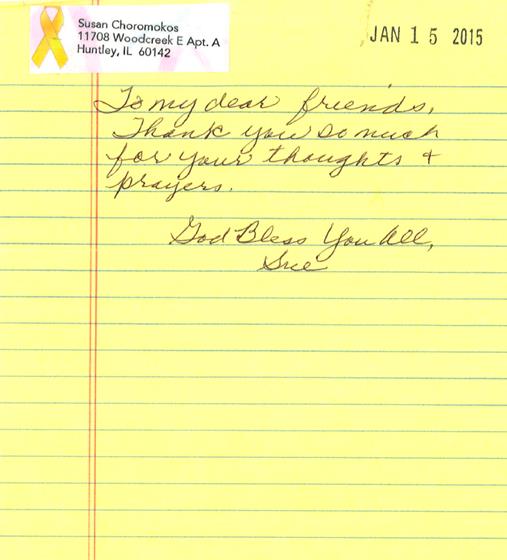 Susan Choromokos
11708 Woodcreek E Apt. A
Huntley, IL 60142
JAN 15 2015
To my dear friends,
Thank you so much
for your thoughts +
prayers.
God Bless You All,
Sue